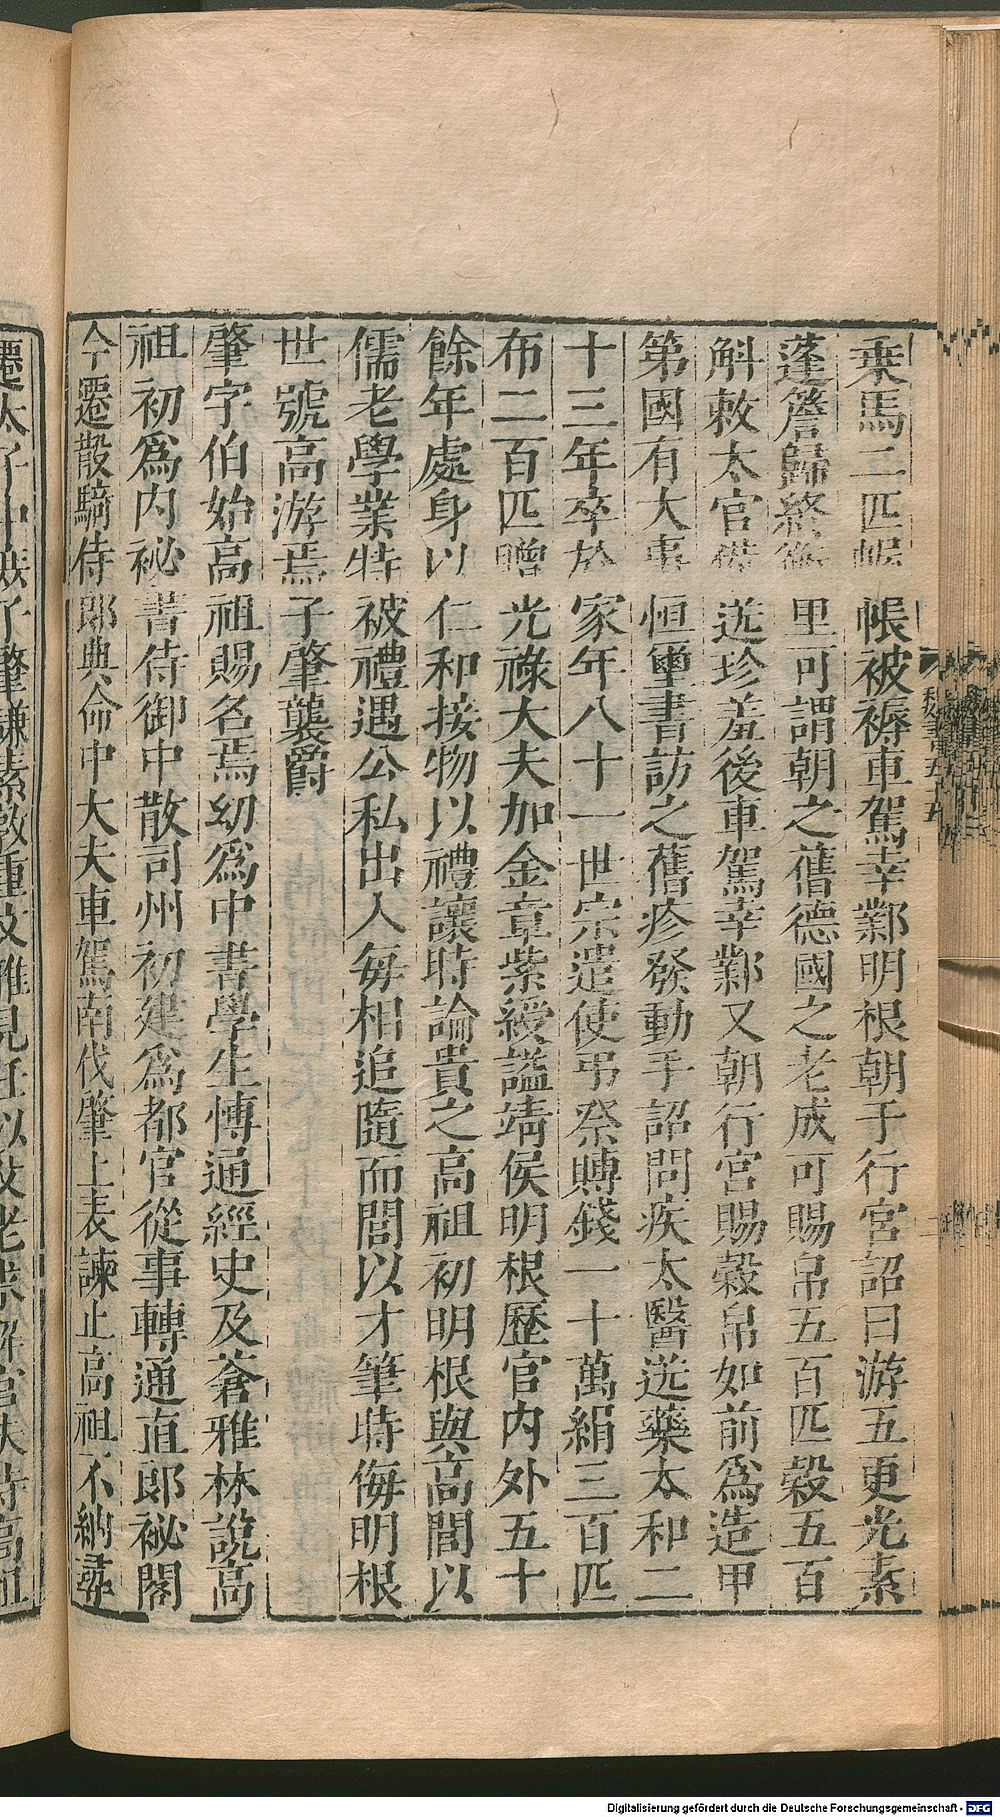 乗馬二匹幄帳被褥車駕幸鄴明根朝于行宮詔曰游五更光素
蓬簷歸終衡里可謂朝之舊德國之老成可賜帛五百匹穀五百
斛敕太官備送珍羞後車駕幸鄴又朝行宮賜穀帛如前爲造甲
第國有大事恒璽書訪之舊疹發動手詔問疾太醫送藥太和二
十三年卒於家年八十一世宗遣使弔祭賻錢一十萬絹三百匹
布二百匹贈光祿大夫加金章紫綬謚靖侯明根歷官内外五十
餘年處身以仁和接物以禮讓時論貴之高祖初明根與高閭以
儒老學業特被禮遇公私出入每相追隨而閭以才筆時侮明根
世號高游焉子肇襲爵
肇字伯始高祖賜名焉幼爲中書學生博通經史及蒼雅林說高
祖初爲内祕書侍御中散司州初建爲都官從事轉通直郎祕閣
令遷散騎侍郎典命中大夫車駕南伐肇上表諫止高祖不納尋
魏書五十五
遷太子中庶子肇謙素敦重文雅見任以父老求解官扶侍高祖
Digitalisierung gefördert durch die Deutsche Forschungsgemeinschaft - DFG